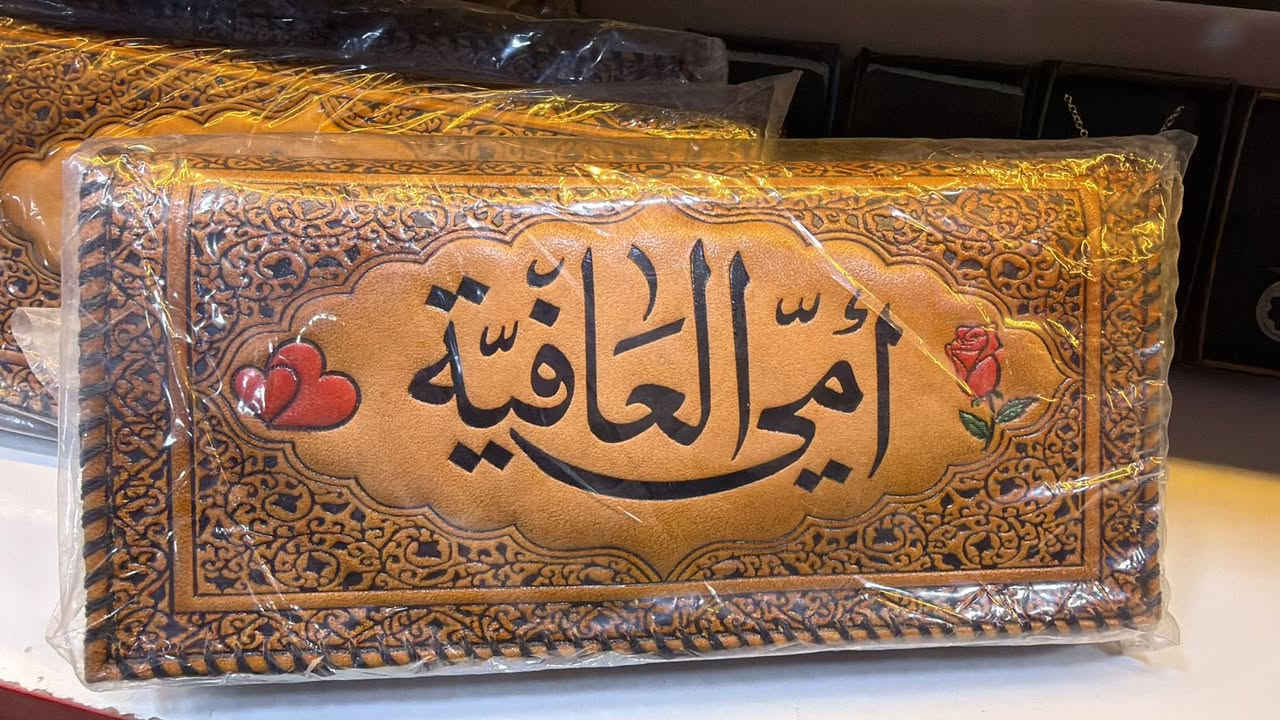 أمّي العَافيّة